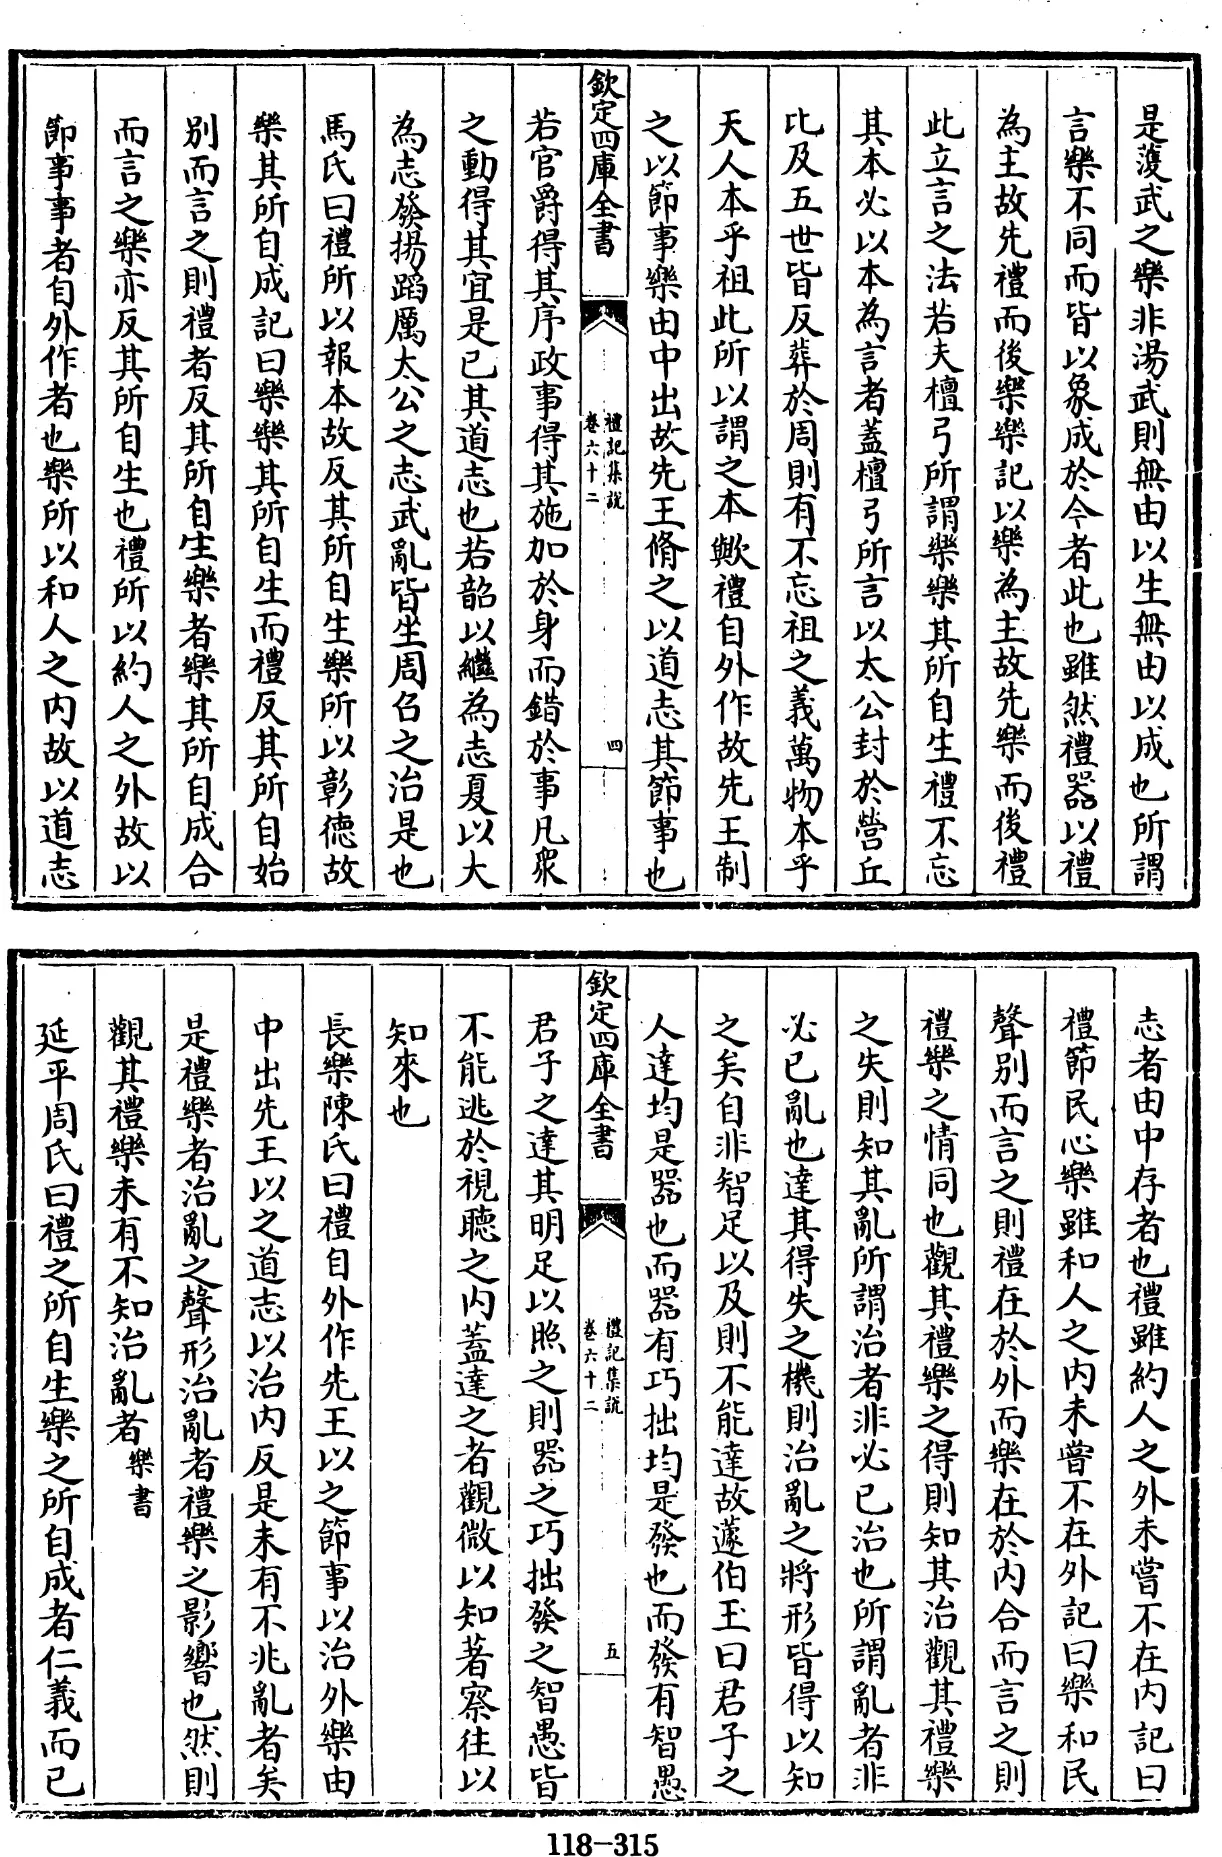 是濩武之樂非湯武則無由以生無由以成也所謂
言樂不同而皆以象成於今者此也雖然禮器以禮
為主故先禮而後樂樂記以樂為主故先樂而後禮
此立言之法若夫檀弓所謂樂樂其所自生禮不忘
其本必以本為言者蓋檀弓所言以太公封於營丘
比及五世皆反葬於周則有不忘祖之義萬物本乎
天人本乎祖此所以謂之本歟禮自外作故先王制
之以節事樂由中出故先王脩之以道志其節事也
欽定四庫全書
禮記集說
卷六十二
四
若官爵得其序政事得其施加於身而錯於事凡衆
之動得其宜是已其道志也若韶以繼為志夏以大
為志發揚蹈厲太公之志武亂皆坐周召之治是也
馬氏曰禮所以報本故反其所自生樂所以彰德故
樂其所自成記曰樂樂其所自生而禮反其所自始
別而言之則禮者反其所自生樂者樂其所自成合
而言之樂亦反其所自生也禮所以約人之外故以
節事事者自外作者也樂所以和人之内故以道志
志者由中存者也禮雖約人之外未嘗不在内記曰
禮節民心樂雖和人之内未嘗不在外記曰樂和民
聲別而言之則禮在於外而樂在於内合而言之則
禮樂之情同也觀其禮樂之得則知其治觀其禮樂
之失則知其亂所謂治者非必已治也所謂亂者非
必已亂也達其得失之機則治亂之將形皆得以知
之矣自非智足以及則不能達故蘧伯玉曰君子之
人達均是器也而器有巧拙均是發也而發有智愚
欽定四庫全書
禮記集說
卷六十二
五
君子之達其明足以照之則器之巧拙發之智愚皆
不能逃於視聽之内蓋達之者觀微以知著察往以
知來也
長樂陳氏曰禮自外作先王以之節事以治外樂由
中出先王以之道志以治内反是未有不兆亂者矣
是禮樂者治亂之聲形治亂者禮樂之影響也然則
觀其禮樂未有不知治亂者樂書
延平周氏曰禮之所自生樂之所自成者仁義而已
118-315